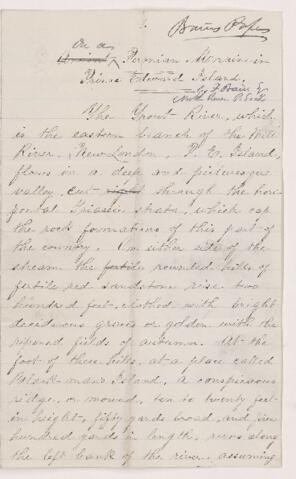 1.
Bain's Paper
On a
Permian Moraine in
Prince Edward Island.
by F Bain Esq
North River P. E. I.
The Trout River, which
is the eastern branch of the Mill
River, New London, P. E. Island,
flows in a deep and picturesque
valley cut right through the hori-
zontal Triassic strata, which cap
the rock formations of this part of
the country. On either side of the
stream the fertile rounded hills of
fertile red sandstone rise two
hundred feet, clothed with bright
deciduous greens or golden with the
ripened fields of autumn. At the
foot of these hills, at a place called
Man's Island, a conspicuous
ridge, or mound, ten to twenty feet
in height, fifty yards broad, and five
hundred yards in length, runs along
the left bank of the river, assuming